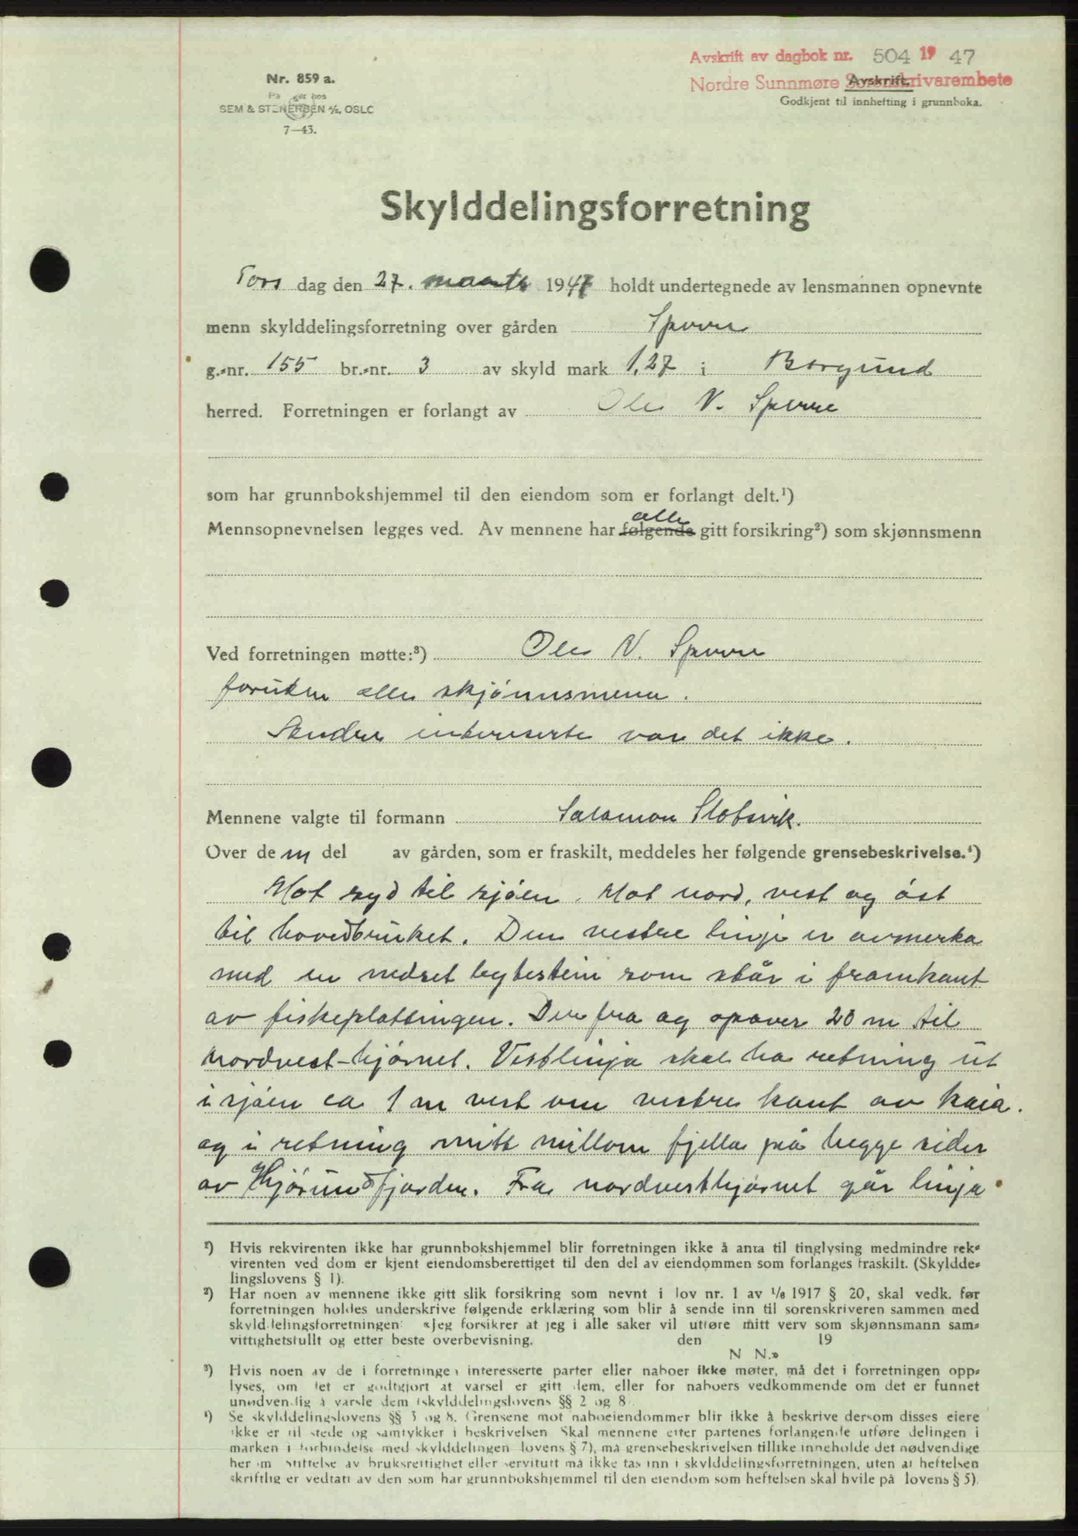 Avskrift av dagbok nr. 504 1947
Nordre Sunnmøre Sorenskrivarembete
Avskrift.
Godkjent til innhefting i grunnboka.
Nr. 859 a.
SEM & STENERSEN A/S, OSLO
7—43.
Skylddelingsforretning
Tors dag den 27. marts 1947 holdt undertegnede av lensmannen opnevnte
menn skylddelingsforretning over gården Sperre
g.-nr. 155 br.-nr. 3 av skyld mark 1,27 i Borgund
herred. Forretningen er forlangt av Ole V. Sperre
som har grunnbokshjemmel til den eiendom som er forlangt delt.¹)
alle
Mennsopnevnelsen legges ved. Av mennene har følgende gitt forsikring²) som skjønnsmenn
Ved forretningen møtte:³) Ole V. Sperre
foruten alle skjønnsmenn.
Andre interesserte var det ikke.
Mennene valgte til formann Salamon Slotsvik.
Over den del av gården, som er fraskilt, meddeles her følgende grensebeskrivelse.⁴)
Mot syd til sjøen. Mot nord, vest og øst
til hovedbruket. Den vestre linje er avmerka
med en nedset bytestein som står i framkant
av fiskeplattingen. Derfra og opover 20 m til
nordvest-hjørnet. Vestlinja skal ha retning ut
i sjøen ca 1 m vest om vestre kant av kaia.
og i retning mitt millom fjella på begge sider
av Hjørundfjorden. Fra nordvesthjørnet går linja
¹) Hvis rekvirenten ikke har grunnbokshjemmel blir forretningen ikke å anta til tinglysing medmindre rek-
virenten ved dom er kjent eiendomsberettiget til den del av eiendommen som forlanges fraskilt. (Skyldde-
lingslovens § 1).
²) Har noen av mennene ikke gitt slik forsikring som nevnt i lov nr. 1 av 1/6 1917 § 20, skal vedk. før
forretningen holdes underskrive følgende erklæring som blir å sende inn til sorenskriveren sammen med
skylddelingsforretningen: «Jeg forsikrer at jeg i alle saker vil utføre mitt verv som skjønnsmann sam-
vittighetsfullt og etter beste overbevisning. den 19
N. N.»
³) Hvis noen av de i forretningen interesserte parter eller naboer ikke møter, må det i forretningen opp-
lyses, om det er godtgjort at varsel er gitt dem, eller for naboers vedkommende om det er funnet
unødvendig å varsle dem (skylddelingslovens §§ 2 og 8.
⁴) Se skylddelingslovens §§ 3 og 8. Grensene mot naboeiendommer blir ikke å beskrive dersom disses eiere
ikke er til stede og samtykker i beskrivelsen. Skal mennene etter partenes forlangende utføre delingen i
marken i forbindelse med skylddelingen (lovens § 7), må grensebeskrivelsen tillike inneholde det nødvendige
her om. Stiftelse av bruksrettighet eller servitutt må ikke tas inn i skylddelingsforretningen, uten at heftelsen
skriftlig er vedtatt av den som har grunnbokshjemmel til den eiendom som heftelsen skal hvile på (lovens § 5).